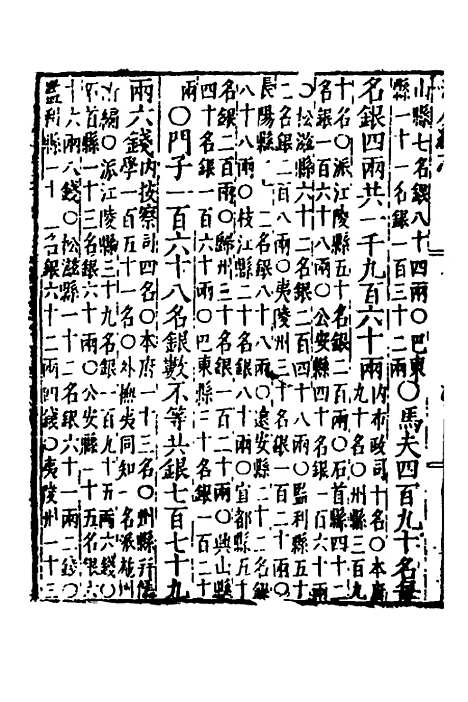 山縣七名銀八十四兩○巴東
縣一十一名銀一百三十二兩○馬夫四百九十名每
名銀四兩共一千九百六十兩內布政司十名○本府
九十名○州縣三百九
十名○派江陵縣五十名銀二百兩○石首縣四十二
名銀一百六十八兩○公安縣四十名銀一百六十兩
○松滋縣六十二名銀二百四十八兩○監利縣五十
二名銀二百八兩○夷陵州三十名銀一百二十兩○
長陽縣二十二名銀八十八兩○遠安縣二十二名銀
八十八兩○枝江縣二十名銀八十兩○宜都縣五十
名銀二百兩○歸州三十名銀一百二十兩○興山縣
四十名銀一百六十兩○巴東縣三十名銀一百二十
兩○門子一百六十八名銀數不等共銀七百七十九
兩六錢內按察司四名○本府一十三名○州縣行儒
學一百五十一名○外撫夷同知一名派荊州
○派江陵縣三十九名銀一百九十五兩六錢○
石首縣一十三名銀六十兩○公安縣一十五名銀六
十六兩六錢○松滋縣一十三名銀六十一兩二錢○
監利縣一十 名銀六十二兩四錢○夷陵州一十三